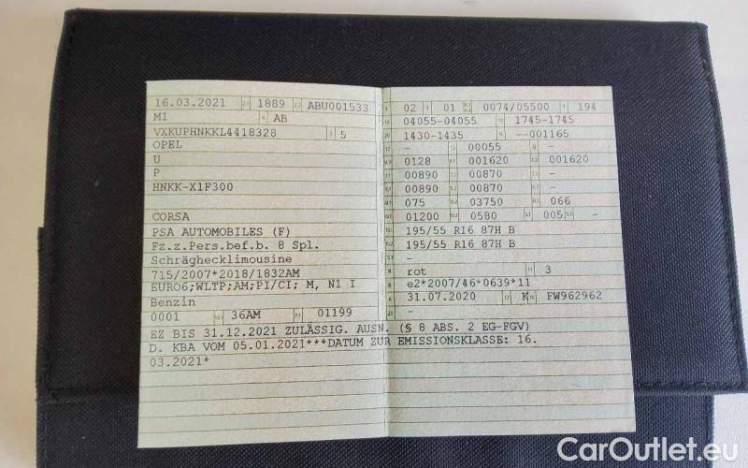 16.03.2021 1889 ABU001533
M1 AB
VXKUPHNKKL4418328 5
OPEL
U
P
HNKK-X1F300
CORSA
PSA AUTOMOBILES (F)
Fz.z.Pers.bef.b. 8 Spl.
Schräghecklimousine
715/2007*2018/1832AM
EURO6;WLTP;AM;PI/CI; M, N1 I
Benzin
0001 36AM 01199
EZ BIS 31.12.2021 ZULÄSSIG. AUSN. (§ 8 ABS. 2 EG-FGV)
D. KBA VOM 05.01.2021***DATUM ZUR EMISSIONSKLASSE: 16.
03.2021*
02 01 0074/05500 194
04055-04055 1745-1745
1430-1435 --001165
- 00055 -
0128 001620 001620
00890 00870 -
00890 00870 -
075 03750 066
01200 0580 005 -
195/55 R16 87H B
195/55 R16 87H B
-
rot 3
e2*2007/46*0639*11
31.07.2020 K FW962962
-
CarOutlet.eu